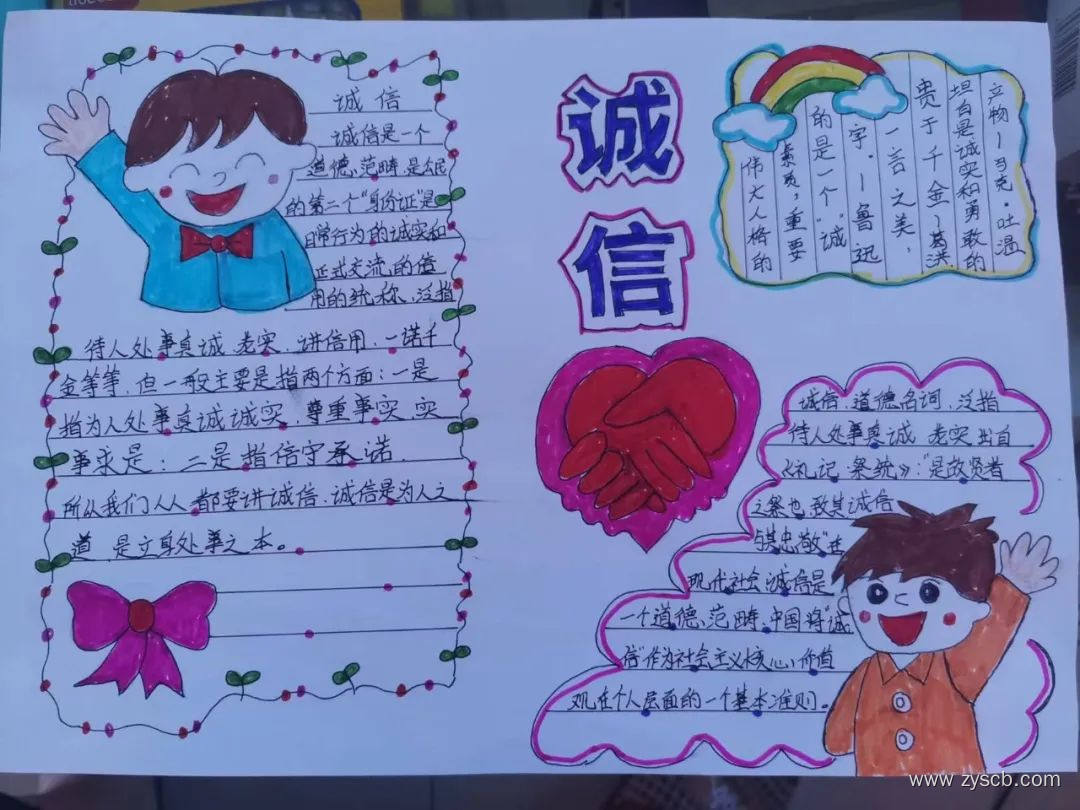 诚信
诚信
诚信是一个
道德范畴,是公民
的第二个"身份证"是
日常行为的诚实和
正式交流的信
用的统称、泛指
待人处事真诚、老实、讲信用、一诺千
金等等,但一般主要是指两个方面:一是
指为人处事真诚诚实,尊重事实,实
事求是;二是指信守承诺.
所以我们人人都要讲诚信,诚信是为人之
道 是立身处事之本。
产物—马克·吐温
坦白是诚实和勇敢的
贵于千金—葛洪
一言之美,
字.—鲁迅
的是一个"诚"
素质,重要
伟大人格的
诚信,道德名词,泛指
待人处事真诚 老实 出自
《礼记·祭统》:"是故贤者
之祭也,致其诚信
与其忠敬"在
现代社会,诚信是
一个道德范畴,中国将"诚
信"作为社会主义核心价值
观在个人层面的一个基本准则。
www.zyscb.com